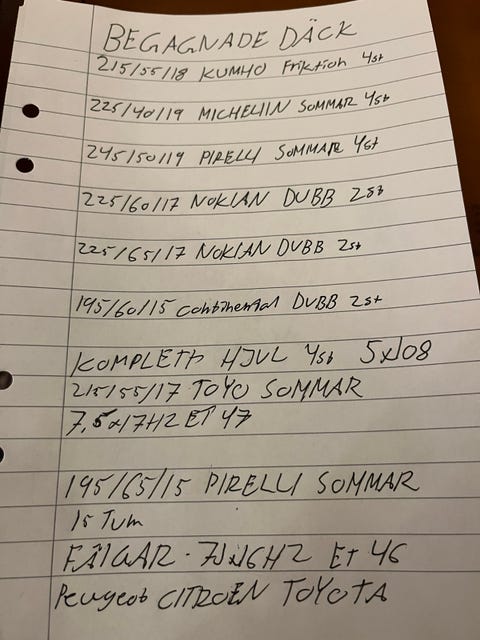 BEGAGNADE DÄCK
215/55/18 KUMHO Friktion 4st
225/40/19 MICHELIIN SOMMAR 4st
245/50/19 PIRELLI SOMMAR 4st
225/60/17 NOKIAN DUBB 2st
225/65/17 NOKIAN DUBB 2st
195/60/15 continental DUBB 2st
KOMPLETA HJUL 4st 5x108
215/55/17 TOYO SOMMAR
7,5x17H2 ET 47
195/65/15 PIRELLI SOMMAR
15 TUM
FÄLGAR - 7Jx16H2 ET 46
Peugeot CITROËN TOYOTA